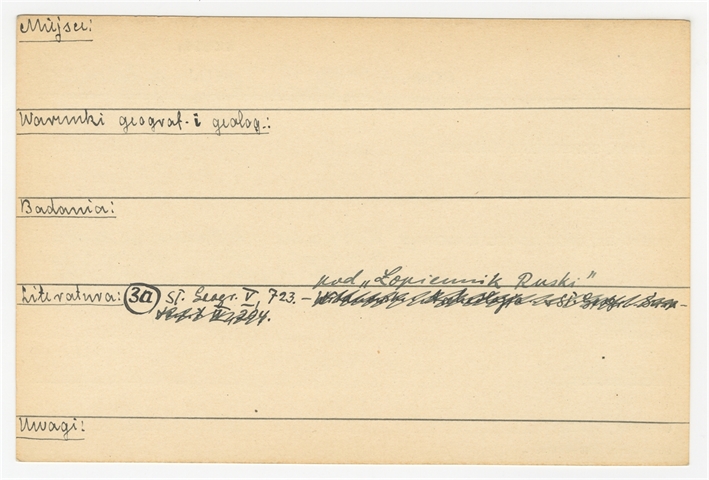 Miejsce:
Warunki geograf. i geolog.:
Badania:
pod „Łopiennik Ruski”
Literatura: 3a Sł. Geogr. V, 723. –